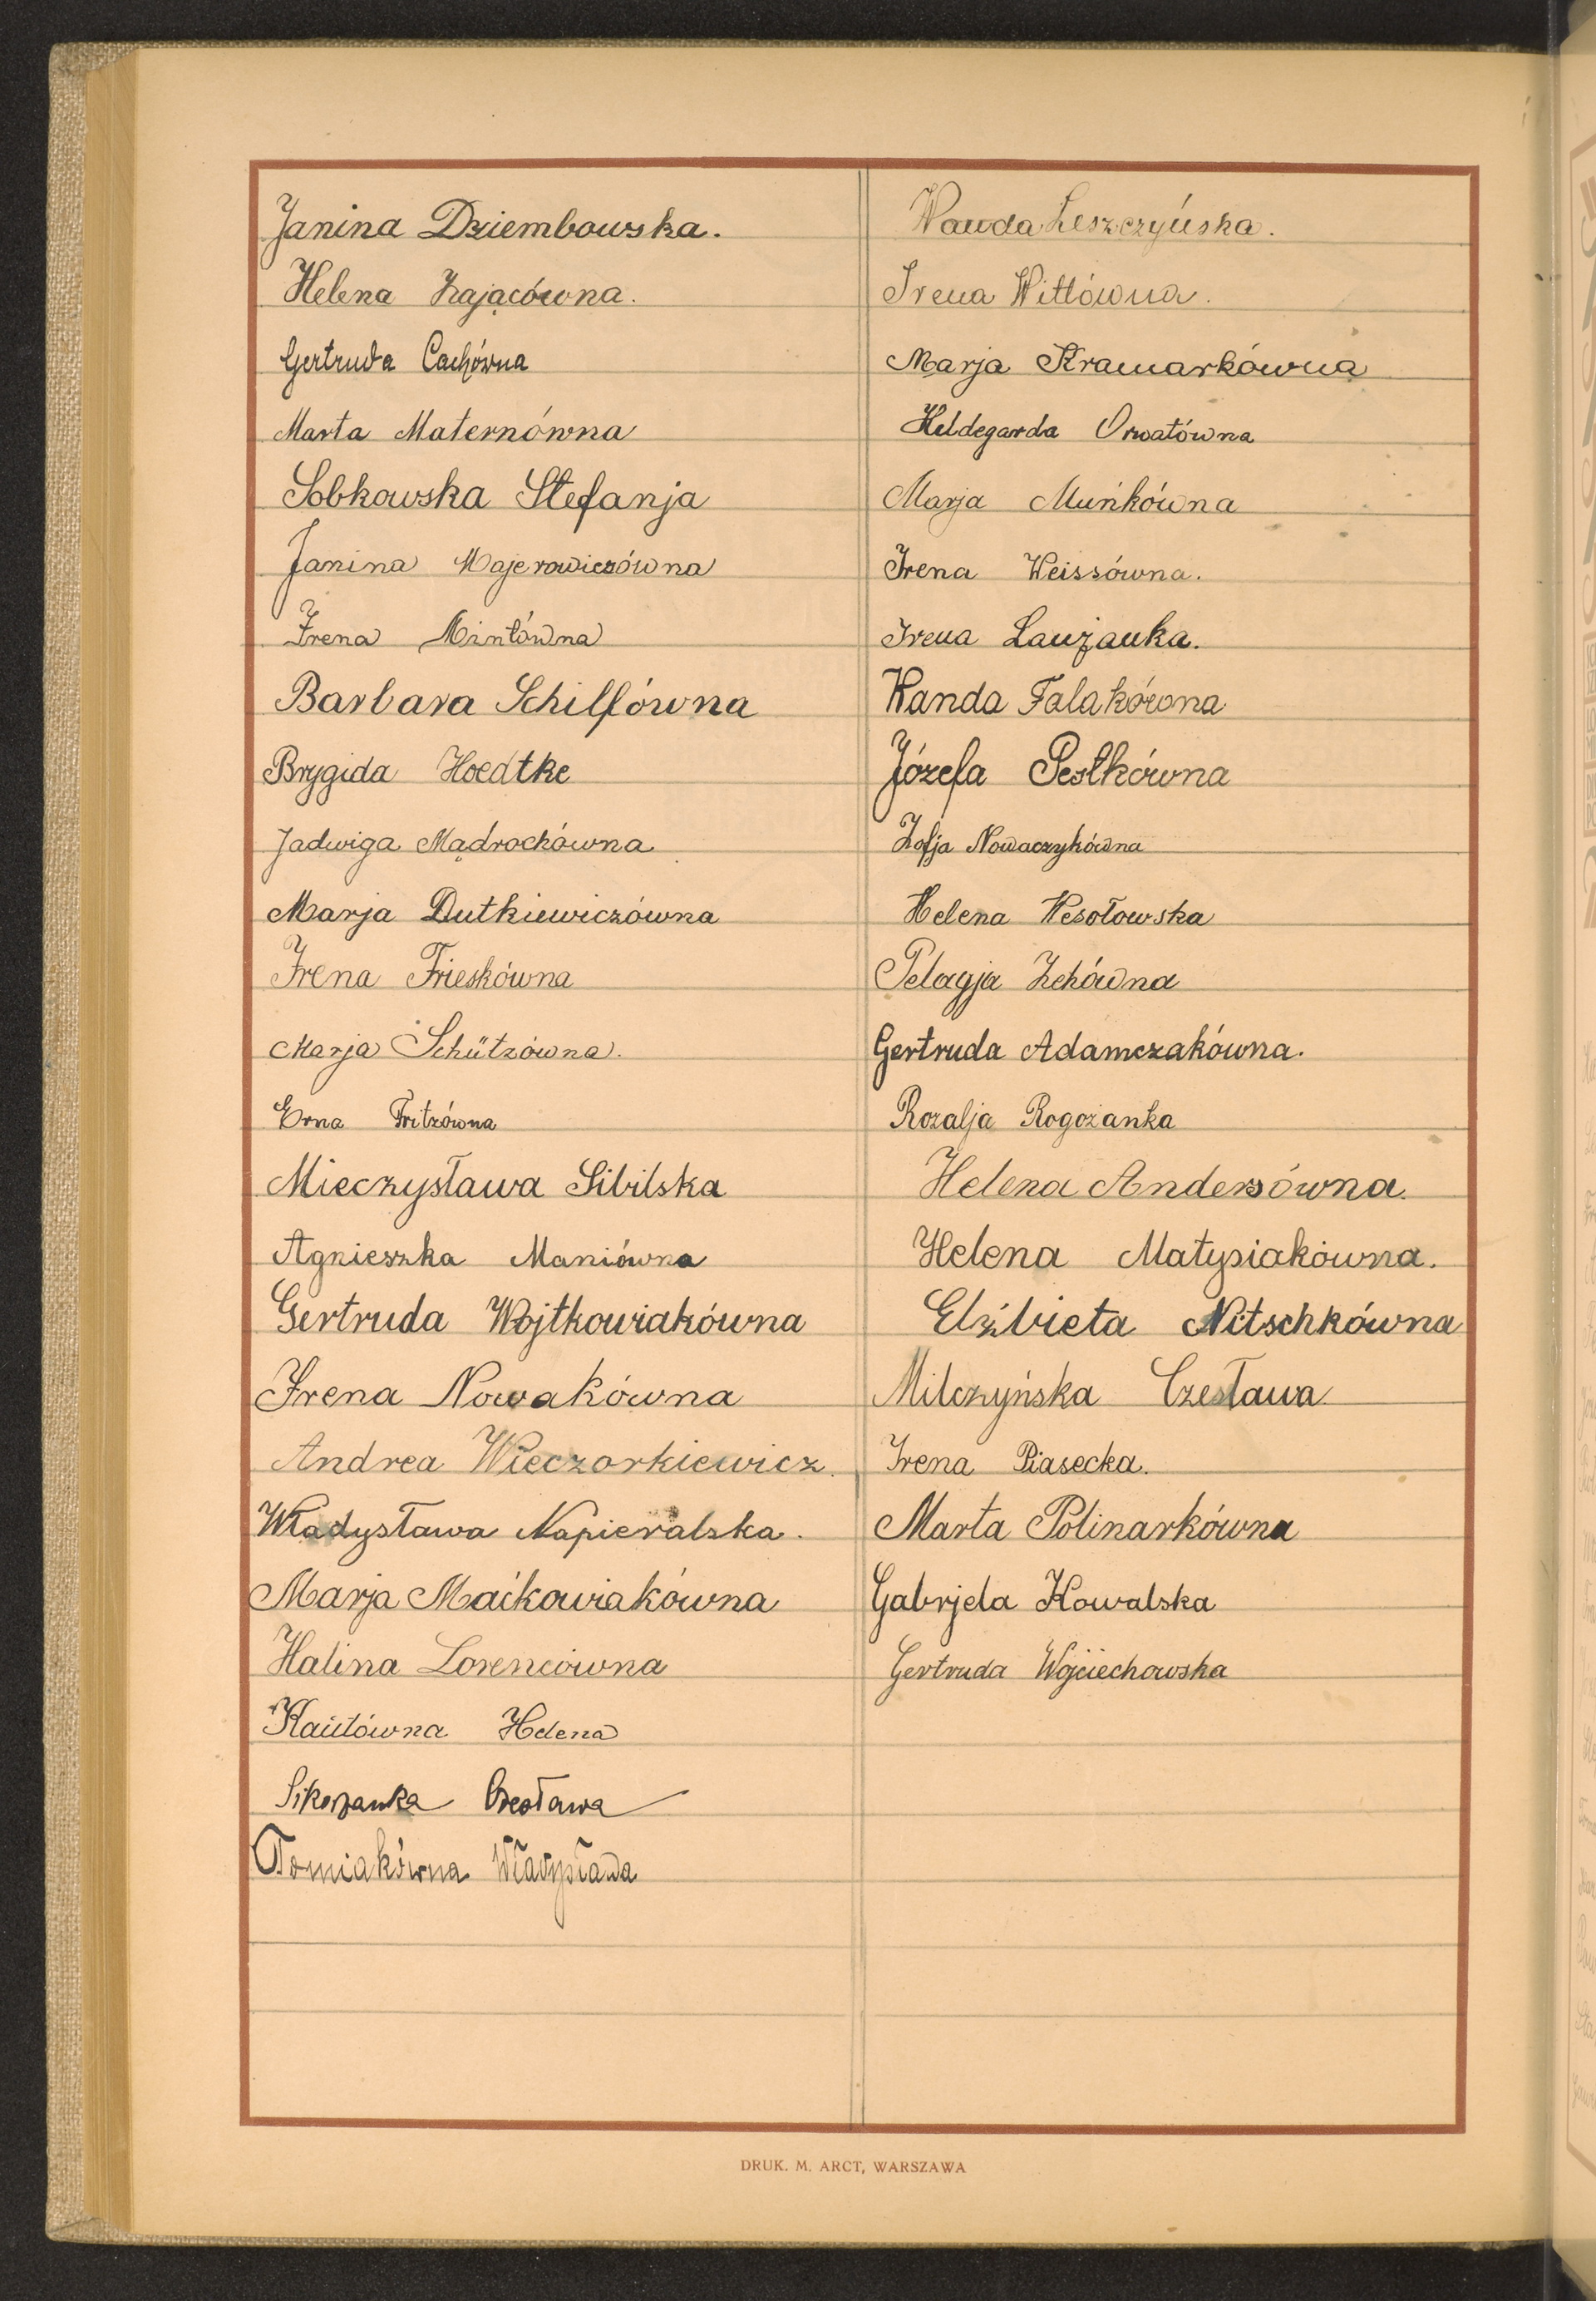 Janina Dziembowska.
Helena Zającówna.
Gertruda Cachówna
Marta Maternówna
Sobkowska Stefanja
Janina Majerowiczówna
Irena Mintówna
Barbara Schilfówna
Brygida Hoedtke
Jadwiga Mądrochówna
Marja Dutkiewiczówna
Irena Frieskówna
Marja Schützówna.
Erna Fritzówna
Mieczysława Sibilska
Agnieszka Maniówna
Gertruda Wojtkowiakówna
Irena Nowakówna
Andrea Wieczorkiewicz.
Władysława Napieralska.
Marja Maćkowiakówna
Halina Lorencówna
Kaútówna Helena
Sikorzanka Czesława
Tomiakówna Władysława
Wanda Leszczyńska.
Irena Wittówna.
Marja Kramarkówna
Hildegarda Orwatówna
Marja Muńkówna
Irena Weissówna.
Irena Lauzanka.
Wanda Falakówna
Józefa Pestkówna
Zofja Nowaczykówna
Helena Wesołowska
Pelagja Zehówna
Gertruda Adamczakówna.
Rozalja Rogozanka
Helena Andersówna.
Helena Matysiakówna.
Elżbieta Nitschkówna
Milczyńska Czesława
Irena Piasecka.
Marta Polinarkówna
Gabrjela Kowalska
Gertruda Wojciechowska
DRUK. M. ARCT, WARSZAWA